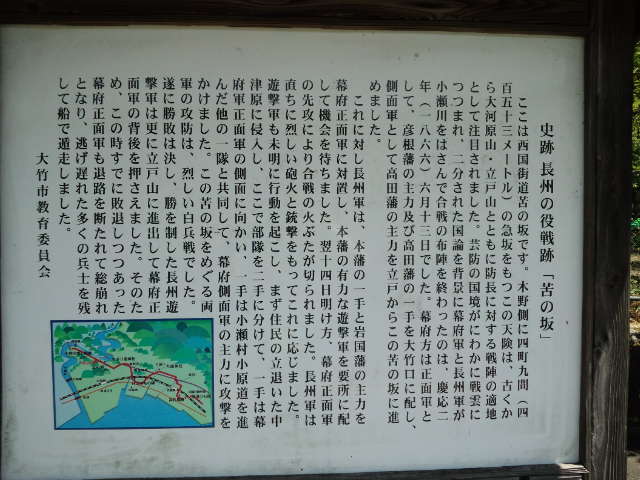 史跡 長州の役戦跡「苦の坂」
ここは西国街道苦の坂です。木野側に四町九間（四
百五十三メートル）の急坂をもつこの天険は、古くか
ら大河原山・立戸山とともに防長に対する戦陣の適地
として注目されました。芸防の国境がにわかに戦雲に
つつまれ、二分された国論を背景に幕府軍と長州軍が
小瀬川をはさんで合戦の布陣を終わったのは、慶応二
年（一八六六）六月十三日でした。幕府方は正面軍と
して、彦根藩の主力及び高田藩の一手を大竹口に配し、
側面軍として高田藩の主力を立戸からこの苦の坂に進
めました。
これに対し長州軍は、本藩の一手と岩国藩の主力を
幕府正面軍に対置し、本藩の有力な遊撃軍を要所に配
して機会を待ちました。翌十四日明け方、幕府正面軍
の先攻により合戦の火ぶたが切られました。長州軍は
直ちに烈しい砲火と銃撃をもってこれに応じました。
遊撃軍も未明に行動を起こし、まず住民の立退いた中
津原に侵入し、ここで部隊を二手に分けて、一手は幕
府軍正面軍の側面に向かい、一手は小瀬村小原道を進
んだ他の一隊と共同して、幕府側面軍の主力に攻撃を
かけました。この苦の坂をめぐる両
軍の攻防は、烈しい白兵戦でした。
遂に勝敗は決し、勝を制した長州遊
撃軍は更に立戸山に進出して幕府正
面軍の背後を押さえました。そのた
め、この時すでに敗退しつつあった
幕府正面軍も退路を断たれて総崩れ
となり、逃げ遅れた多くの兵士を残
して船で遁走しました。
大竹市教育委員会